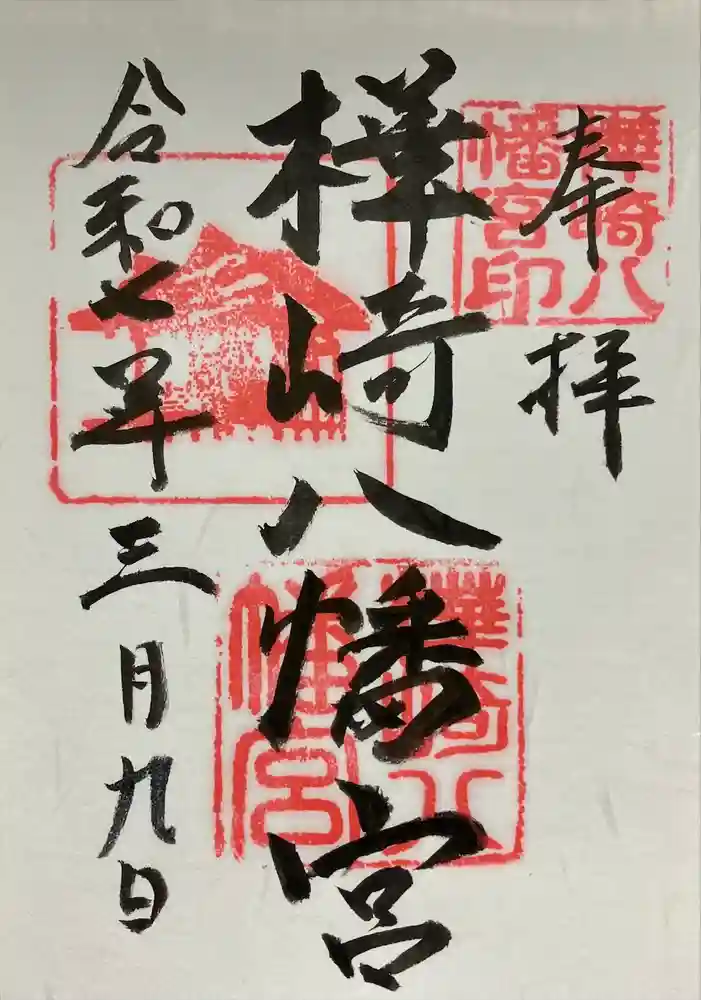 奉拝
樺崎八幡宮印
樺崎八幡宮
樺崎八幡宮
令和七年三月九日